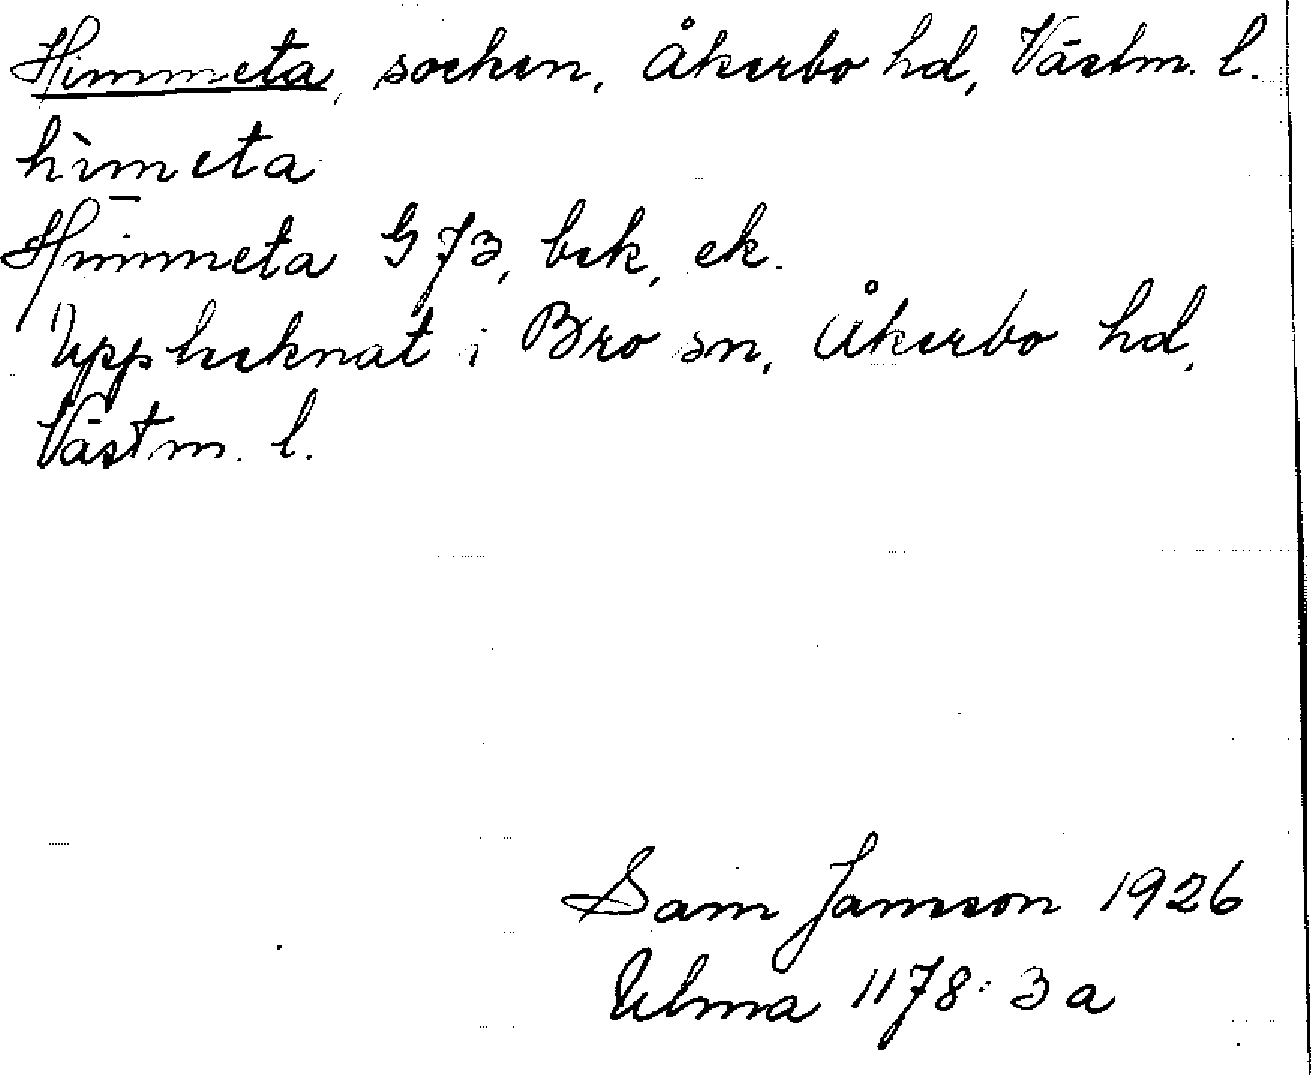 Himmeta, socken, Åkerbo hd, Västm. l.
hìm̲eta
Himmeta G 73, bek, ek.
Upptecknat i Bro sn, Åkerbo hd,
Västm. l.
Sam Jansson 1926
Ulma 1178: 3 a